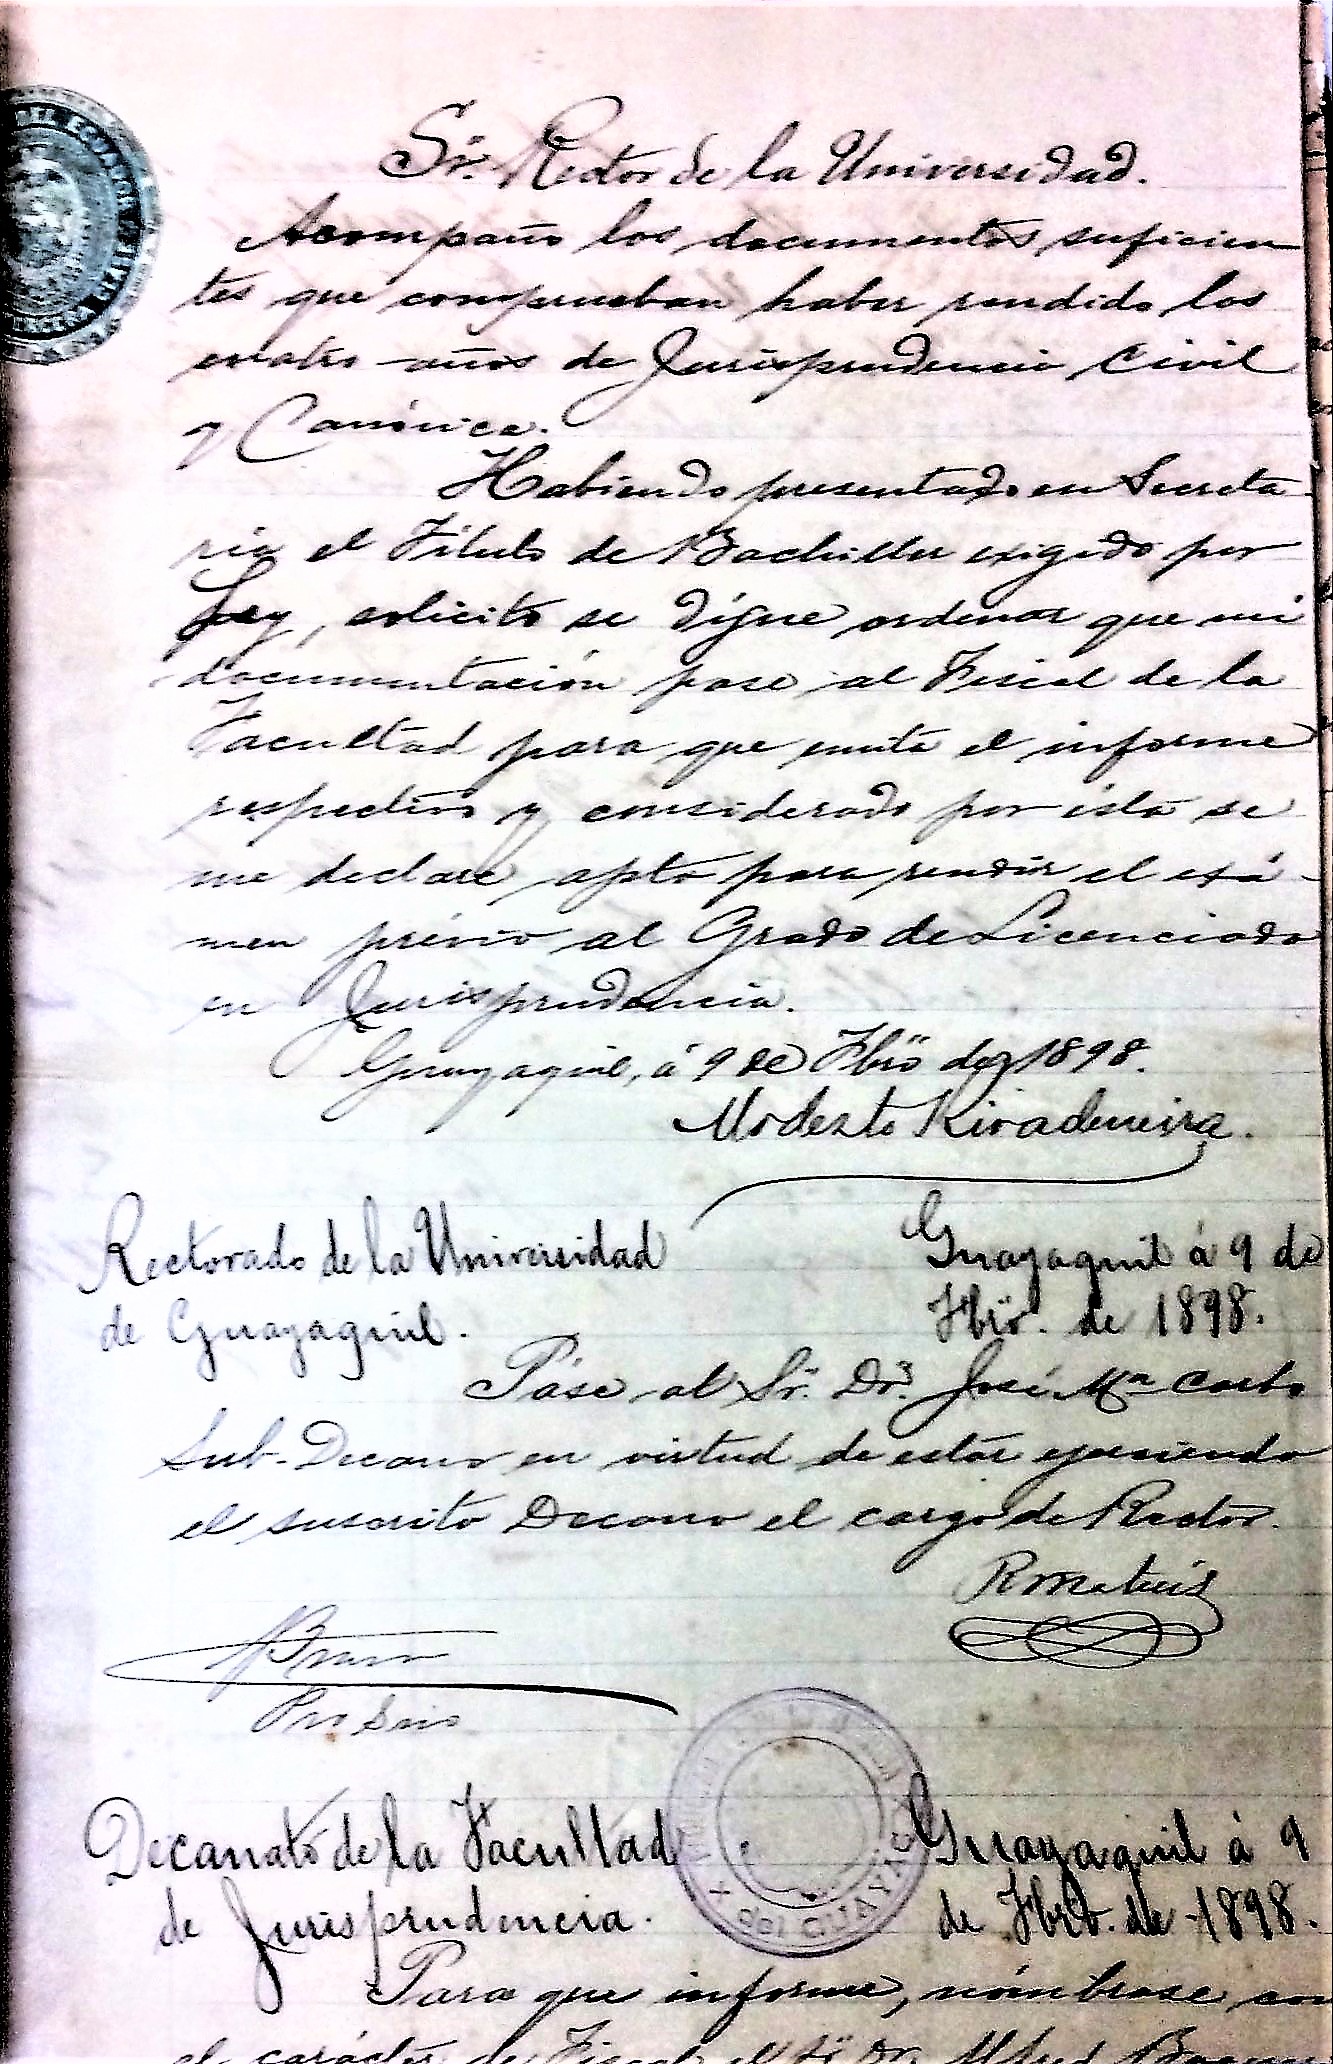 Sr. Rector de la Universidad.
Acompaño los documentos suficien
tes que comprueban haber rendido los
cuatro años de Jurisprudencia Civil
y Canónica.
Habiendo presentado en Secreta
ría el Título de Bachiller exigido por
Ley, solicito se dígne ordenar que mi
documentación pase al Fiscal de la
Facultad para que emita el informe
respectivo y considerado por ésta se
me declare apto para rendir el exá-
men prévio al Grado de Licenciado
en Jurisprudencia.
Guayaquil, á 9 de Fbro de 1898.
Modesto Rivadeneira.
Rectorado de la Universidad
de Guayaquil.
Guayaquil á 9 de
Fbro. de 1898.
Páse al Sr. Dr. José Ma Carbo
Sub-Decano en virtud de estar ejerciendo
el suscrito Decano el cargo de Rector.
Decanato de la Facultad
de Jurisprudencia.
del GUAYAS
Guayaquil á 9
de Fbro. de 1898.
Para que informe, nómbrase, con
el carácter de Fiscal, al Sr Dr.